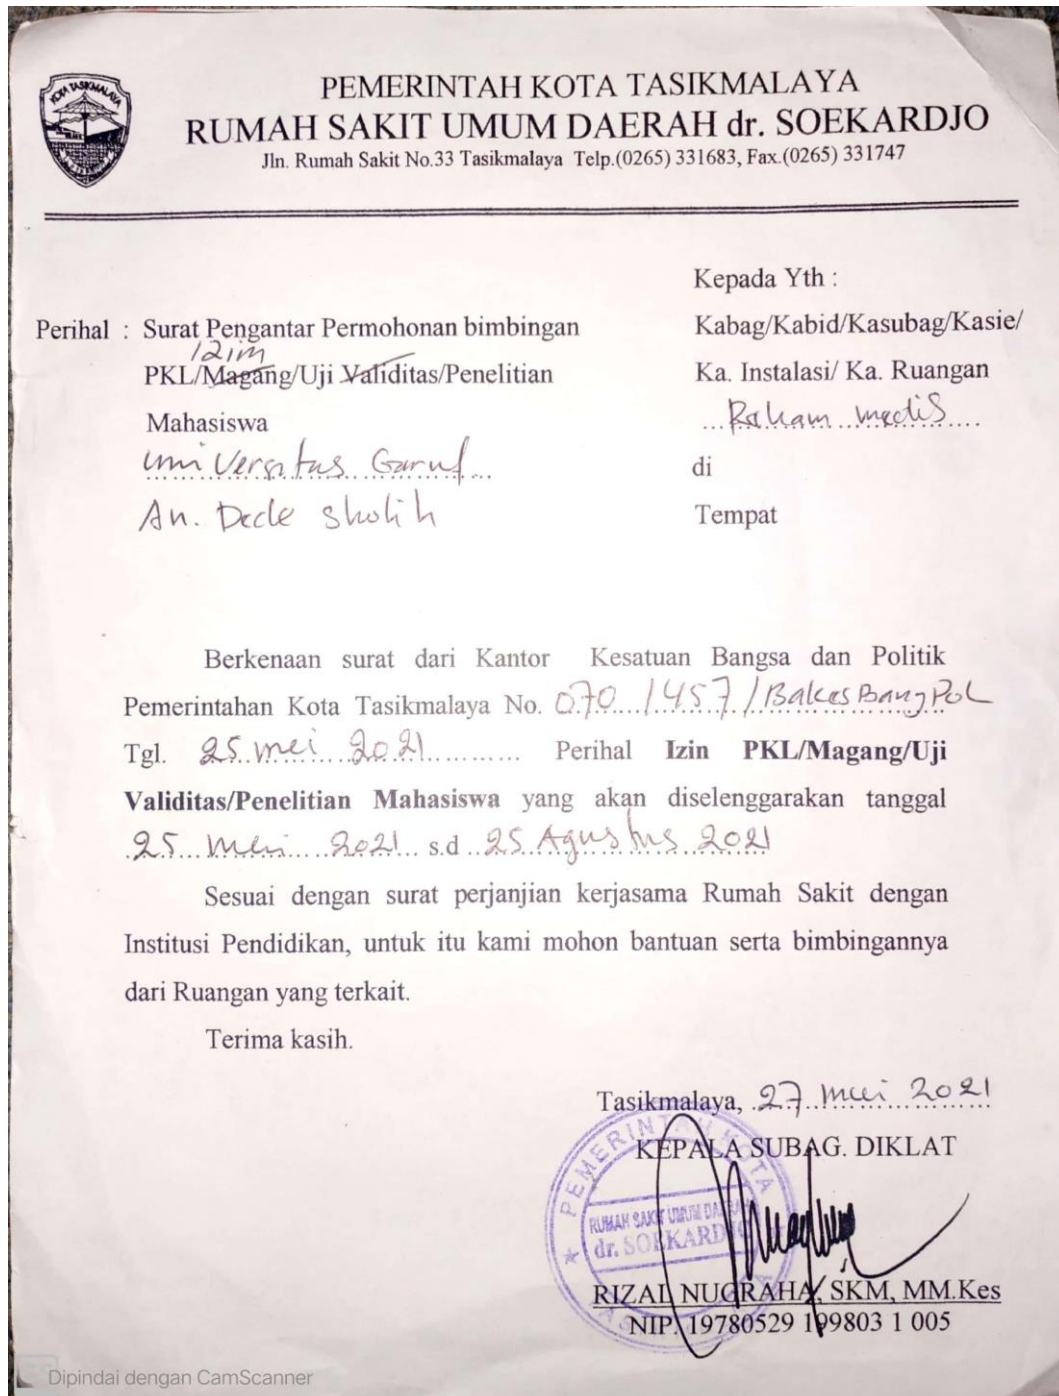 KOTA TASIKMALAYA
PEMERINTAH KOTA TASIKMALAYA
RUMAH SAKIT UMUM DAERAH dr. SOEKARDJO
Jln. Rumah Sakit No.33 Tasikmalaya Telp.(0265) 331683, Fax.(0265) 331747
Kepada Yth :
Perihal : Surat Pengantar Permohonan bimbingan
Izin
PKL/Magang/Uji Validitas/Penelitian
Mahasiswa
Universitas Garut
An. Dede Sholih
Kabag/Kabid/Kasubag/Kasie/
Ka. Instalasi/ Ka. Ruangan
Rekam medis
di
Tempat
Berkenaan surat dari Kantor Kesatuan Bangsa dan Politik
Pemerintahan Kota Tasikmalaya No. 070 / 457 / BakesBangPol
Tgl. 25 mei 2021 Perihal Izin PKL/Magang/Uji
Validitas/Penelitian Mahasiswa yang akan diselenggarakan tanggal
25 Mei 2021 s.d 25 Agustus 2021
Sesuai dengan surat perjanjian kerjasama Rumah Sakit dengan
Institusi Pendidikan, untuk itu kami mohon bantuan serta bimbingannya
dari Ruangan yang terkait.
Terima kasih.
Tasikmalaya, 27 mei 2021
KEPALA SUBAG. DIKLAT
PEMERINTAH KOTA
RUMAH SAKIT UMUM DAERAH
dr. SOEKARDJO
RIZAL NUGRAHA, SKM, MM.Kes
NIP. 19780529 199803 1 005
CS Dipindai dengan CamScanner